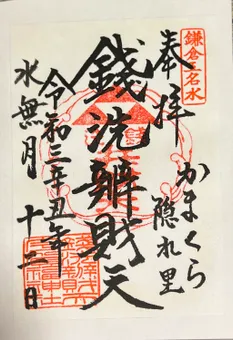 鎌倉五名水
奉拝
かまくら
隠れ里
銭洗辦財天
令和三辛丑年
水無月
十二日